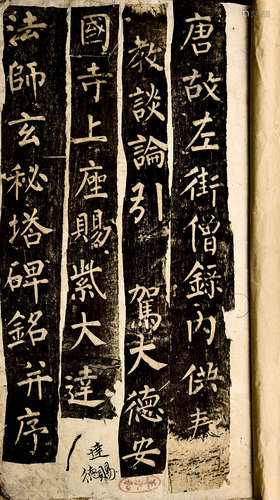 唐故左街僧錄內供奉
教談論引 駕大德安
國寺上座賜紫大達
法師玄秘塔碑銘并序
達
德賜